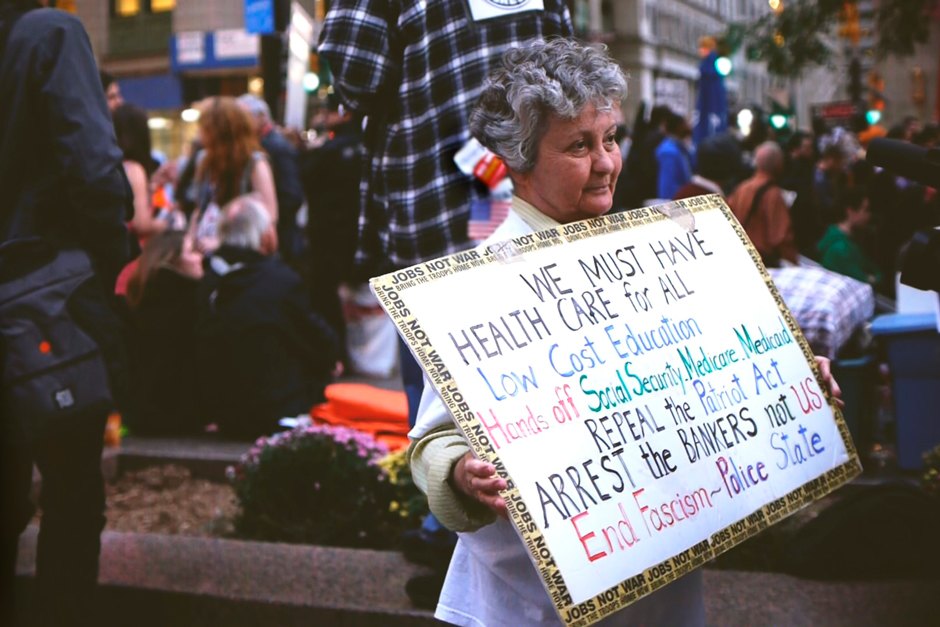 JOBS NOT WAR JOBS NOT WAR JOBS NOT WAR
BRING THE TROOPS HOME NOW
WE MUST HAVE
HEALTH CARE for ALL
Low Cost Education
Hands off Social Security, Medicare, Medicaid
REPEAL the Patriot Act
ARREST the BANKERS not US
End Fascism~Police State
JOBS NOT WAR JOBS NOT WAR JOBS NOT WAR